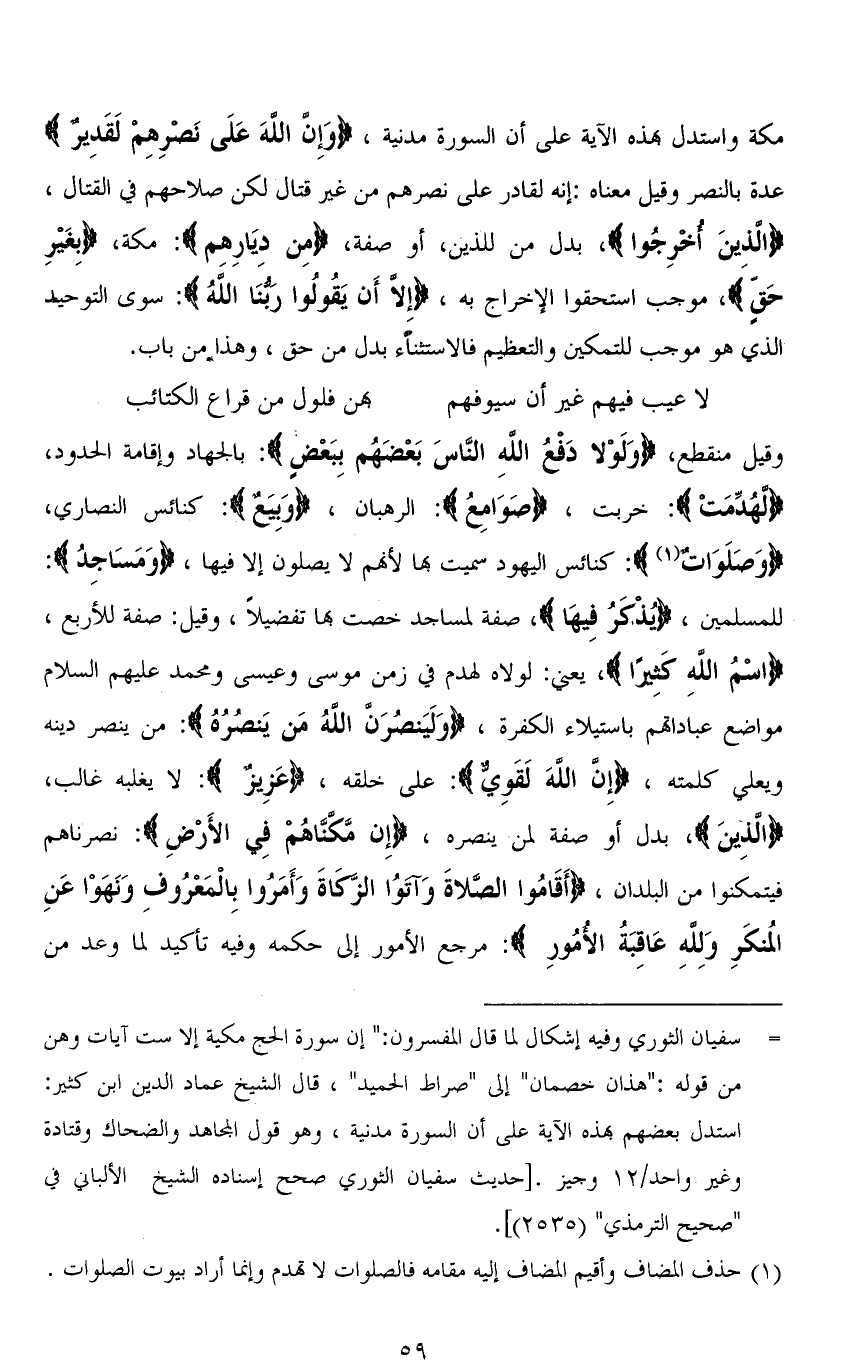 مكة واستدل بهذه الآية على أن السورة مدنية ، ﴿وَإِنَّ اللَّهَ عَلَى نَصْرِهِمْ لَقَدِيرٌ﴾
عدة بالنصر وقيل معناه :إنه لقادر على نصرهم من غير قتال لكن صلاحهم في القتال ،
﴿الَّذِينَ أُخْرِجُوا﴾، بدل من للذين، أو صفة، ﴿مِن دِيَارِهِم﴾: مكة، ﴿بِغَيْرِ
حَقٍّ﴾، موجب استحقوا الإخراج به ، ﴿إِلاَّ أَن يَقُولُوا رَبُّنَا اللَّهُ﴾: سوى التوحيد
الذي هو موجب للتمكين والتعظيم فالاستثناء بدل من حق ، وهذا من باب.
لا عيب فيهم غير أن سيوفهم بهن فلول من قراع الكتائب
وقيل منقطع، ﴿وَلَوْلا دَفْعُ اللَّهِ النَّاسَ بَعْضَهُم بِبَعْضٍ﴾: بالجهاد وإقامة الحدود،
﴿لَّهُدِّمَتْ﴾: خربت ، ﴿صَوَامِعُ﴾: الرهبان ، ﴿وَبِيَعٌ﴾: كنائس النصاري،
﴿وَصَلَوَاتٌ(١)﴾: كنائس اليهود سميت بها لأنهم لا يصلون إلا فيها ، ﴿وَمَسَاجِدُ﴾:
للمسلمين ، ﴿يُذْكَرُ فِيهَا﴾، صفة لمساجد خصت بها تفضيلاً ، وقيل: صفة للأربع ،
﴿اسْمُ اللَّهِ كَثِيرًا﴾، يعني: لولاه لهدم في زمن موسى وعيسى ومحمد عليهم السلام
مواضع عباداتهم باستيلاء الكفرة ، ﴿وَلَيَنصُرَنَّ اللَّهُ مَن يَنصُرُهُ﴾: من ينصر دينه
ويعلي كلمته ، ﴿إِنَّ اللَّهَ لَقَوِيٌّ﴾: على خلقه ، ﴿عَزِيزٌ ﴾: لا يغلبه غالب،
﴿الَّذِينَ﴾، بدل أو صفة لمن ينصره ، ﴿إِن مَّكَّنَّاهُمْ فِي الأَرْضِ﴾: نصرناهم
فيتمكنوا من البلدان ، ﴿أَقَامُوا الصَّلاةَ وَآتَوُا الزَّكَاةَ وَأَمَرُوا بِالْمَعْرُوفِ وَنَهَوْا عَنِ
الْمُنكَرِ وَلِلَّهِ عَاقِبَةُ الأُمُورِ ﴾: مرجع الأمور إلى حكمه وفيه تأكيد لما وعد من
= سفيان الثوري وفيه إشكال لما قال المفسرون:" إن سورة الحج مكية إلا ست آيات وهن
من قوله :"هذان خصمان" إلى "صراط الحميد" ، قال الشيخ عماد الدين ابن كثير:
استدل بعضهم بهذه الآية على أن السورة مدنية ، وهو قول المجاهد والضحاك وقتادة
وغير واحد/١٢ وجيز .[حديث سفيان الثوري صحح إسناده الشيخ الألباني في
"صحيح الترمذي" (٢٥٣٥)].
(١) حذف المضاف وأقيم المضاف إليه مقامه فالصلوات لا تهدم وإنما أراد بيوت الصلوات .
٥٩